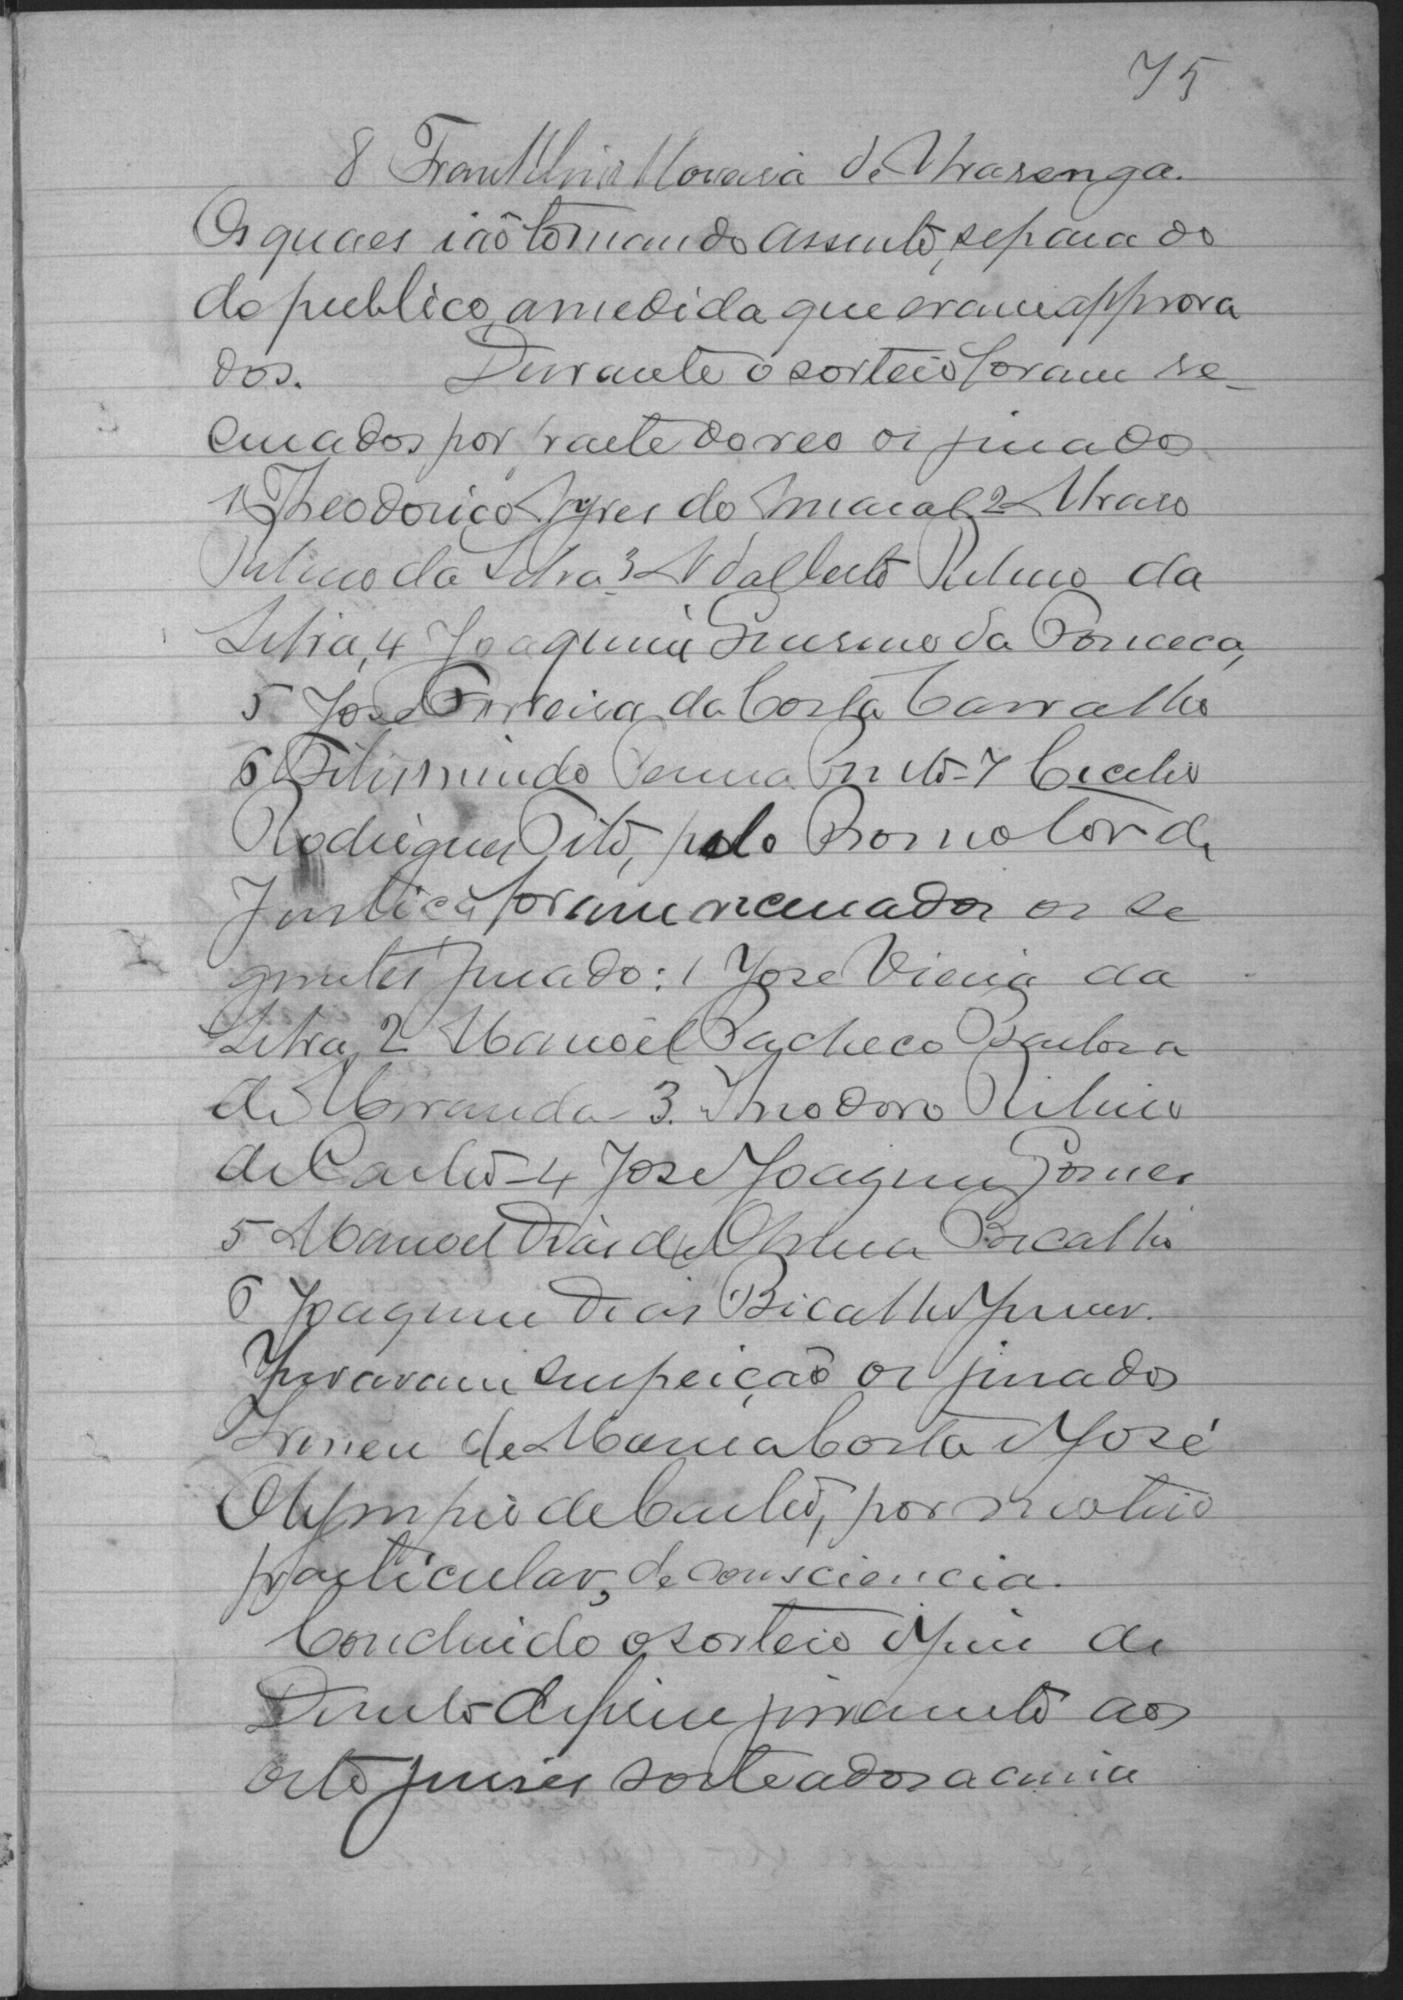 75
8 Franklin Moreira de
Os quaes ião tomando assento, separado
do publico, a medida que eram approva
dos. Durante o sorteio foram re-
cusados por parte do reo os jurados
1 Theodorico Ayres do Amaral 2 Alvaro
Rubino da Silva 3 Adalberto Rubino da
Silva, 4 Joaquim Gursino da Fonceca,
5 José Ferreira da Costa Carvalho
6 Penna Pinto - 7 Cicero
Rodrigues Tito, pelo Promotor de
Justiça foram recusados os se
guintes jurado: 1 Jose Vieira da
Silva 2 Manoel Pacheco Barbosa
de Miranda - 3. Theodoro Ribeiro
de Castro - 4 Jose Joaquim Gomes
5 Manoel Dias de Oliveira Bicalho
6 Joaquim Dias Bicalho Junior.
Juraram suspeição os jurados
Irineu de Costa e José
Olympio de Castro, por motivo
particular, de consciencia.
Concluido o sorteio o Juiz de
Direito deferiu juramento aos
oito juises sorteados acima